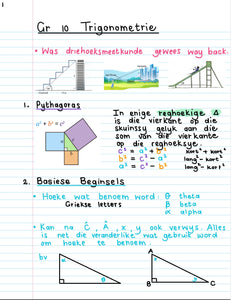 1
Gr 10 Trigonometrie
• Was driehoeksmeetkunde gewees way back.
1. Pythagoras
a² + b² = c²
In enige reghoekige Δ
is die vierkant op die
skuinssy gelyk aan die
som van die vierkante
op die reghoeksye.
c² = a² + b² kort² + kort²
b² = c² - a² lang² - kort²
a² = c² - b² lang² - kort²
2. Basiese Beginsels
• Hoeke wat benoem word: θ theta
Griekse letters β beta
α alpha
• Kan na Ĉ, Â, x, y ook verwys. Alles
is net die veranderlike wat gebruik word
om hoeke te benoem.
bv
θ
A
B
C